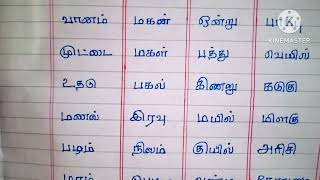 வானம் மகன் ஒன்று
முட்டை மகள் பத்து வெயில்
உதடு பகல் கிணறு கடுகு
மணல் இரவு மயில் மிளகு
படம் நிலம் குயில் அரிசி
KINEMASTER